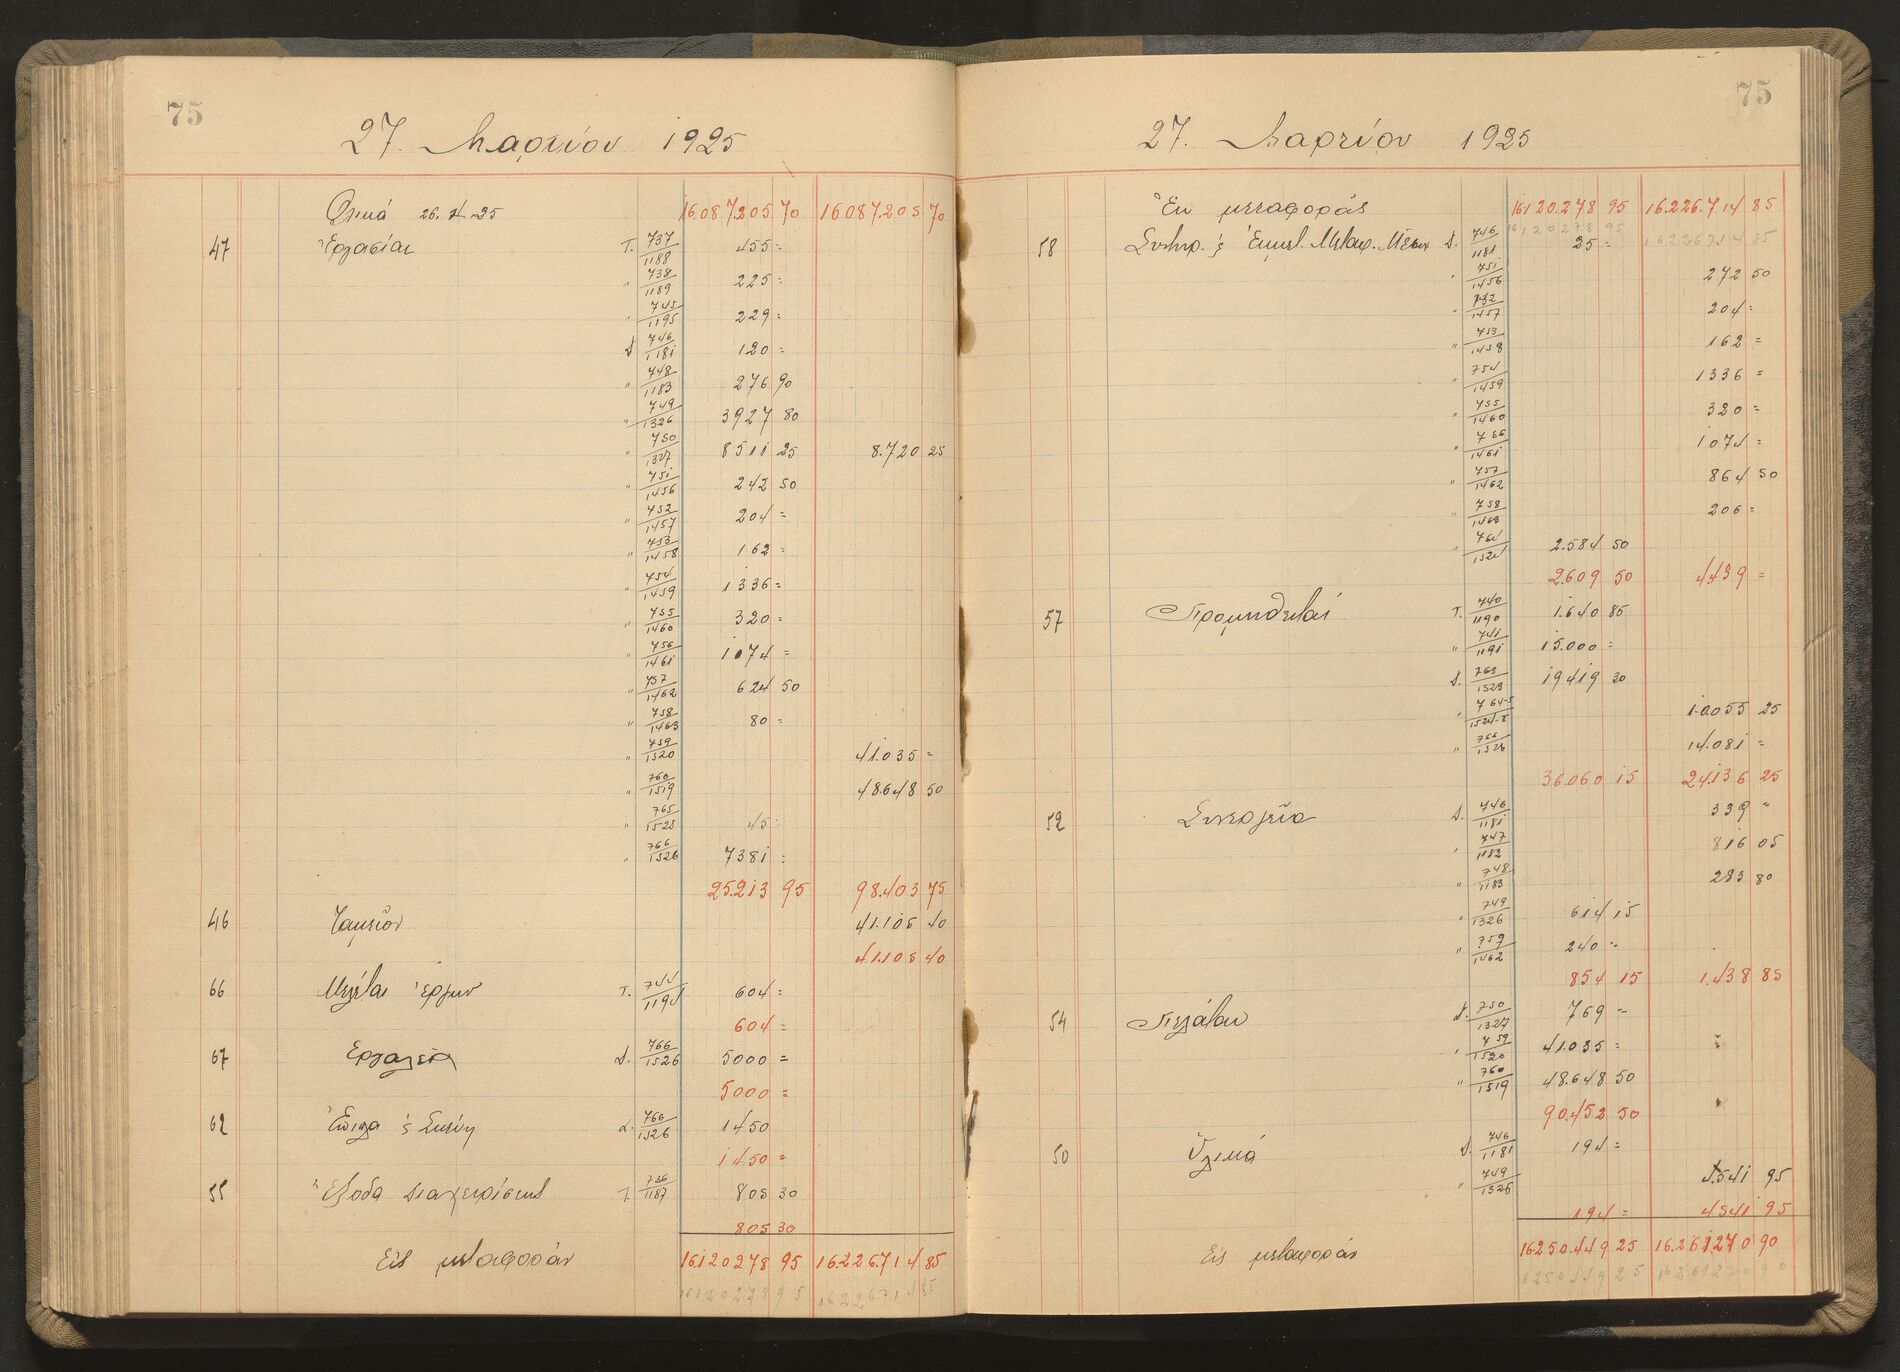 75
27. Μαρτίου 1925
Ολικά 26. 25 16.087.205 70 16.087.205 70
47 Εργασίαι Τ. 737/1188 455 =
" 738/1189 225 =
" 745/1195 229 =
Δ 746/1181 120 =
" 748/1183 276 90
" 749/1326 3927 80
" 750/1327 8511 25 8.720 25
" 751/1456 242 50
" 752/1457 204 =
" 753/1458 162 =
" 754/1459 1336 =
" 755/1460 320 =
" 756/1461 1074 =
" 757/1462 624 50
" 758/1463 80 =
" 759/1520 41.035 =
" 760/1519 48.648 50
" 765/1525 45 =
" 766/1526 7381 =
25.213 95 98.403 75
46 Ταμείον 41.105 40
41.105 40
66 Μελέται έργων Τ. 744/1194 604 =
604 =
67 Εργαλεία Δ. 766/1526 5000 =
5000 =
62 Έπιπλα ς Σκεύη Δ. 766/1526 1450
1450 =
55 Έξοδα Διαχειρίσεως Τ. 736/1187 805 30
805 30
Εις μεταφοράν 16.120.278 95 16.226.714 85
16120278 95 16226714 85
75
27. Μαρτίου 1925
Εκ μεταφοράς 16.120.278 95 16.226.714 85
16120278 95 16226714 85
58 Συντηρ. ς Εκμετ. Μεταφ. Μέσων Δ. 746/1181 25 =
" 751/1456 272 50
" 752/1457 204 =
" 753/1458 162 =
" 754/1459 1336 =
" 755/1460 320 =
" 756/1461 1074 =
" 757/1462 864 50
" 758/1463 206 =
" 764/1524 2.584 50
2.609 50 4.439 =
57 Προμηθευταί Τ. 740/1190 1.640 85
" 741/1191 15.000 =
Δ. 763/1523 19419 30
" 764-5/1524-5 10055 25
" 766/1526 14.081 =
36.060 15 24.136 25
52 Συνεργείο Δ. 746/1181 339 "
" 747/1182 816 05
" 748/1183 283 80
" 749/1326 614 15
" 759/1462 240 =
854 15 1.438 85
54 Πελάται Δ. 750/1327 769 =
" 759/1520 41.035 =
" 760/1519 48.648 50
90.452 50
50 Υλικά Δ. 746/1181 194 =
" 749/1326 4.541 95
194 = 4541 95
Εις μεταφοράν 16.250.449 25 16.261.270 90
16250449 25 16261270 90